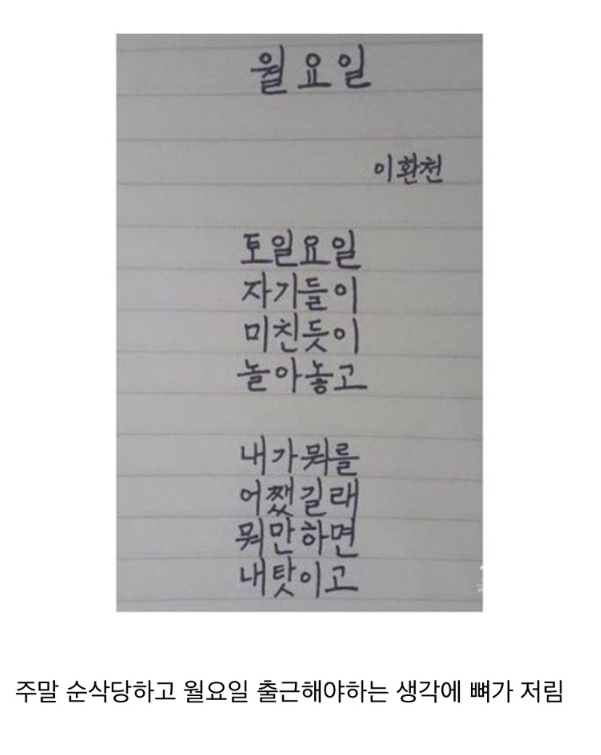 월요일
이환천
토일요일
자기들이
미친듯이
놀아놓고
내가뭐를
어쨌길래
뭐만하면
내탓이고
주말 순삭당하고 월요일 출근해야하는 생각에 뼈가 저림